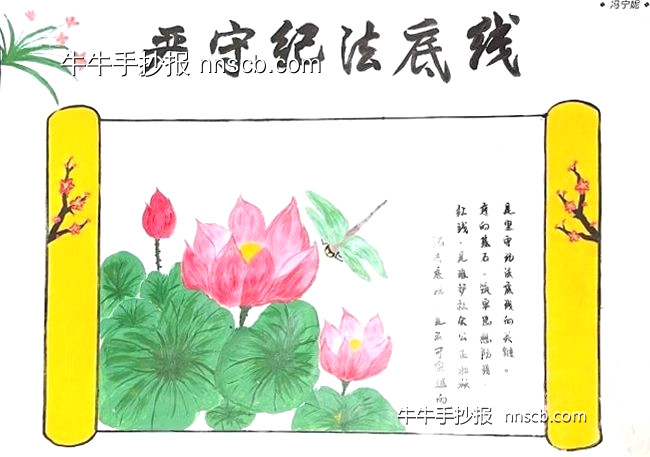 冯宁妮
严守纪法底线
牛牛手抄报 nnscb.com
不可
红线，是维护公正
的基石。筑牢思想防线，
是坚守纪法底线的关键。
牛牛手抄报 nnscb.com